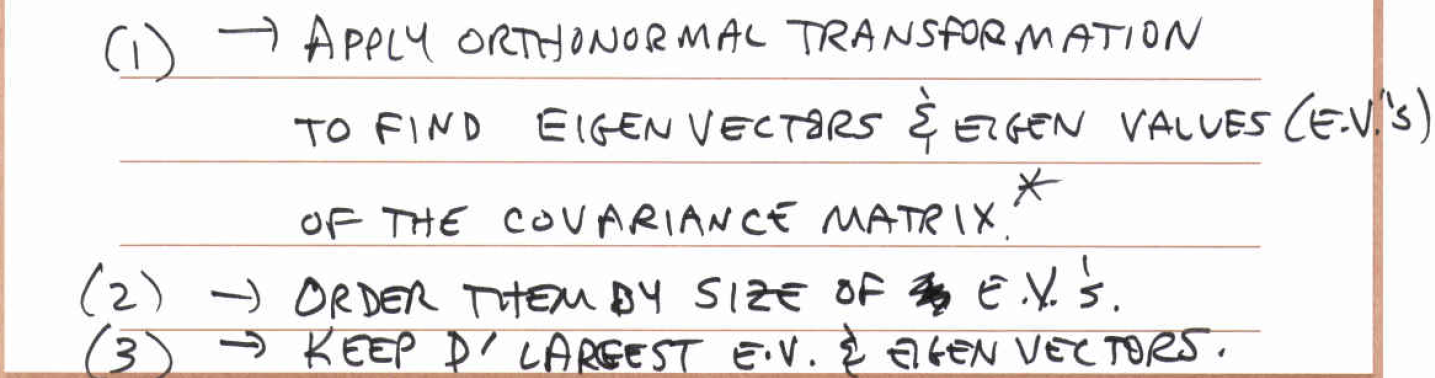 (1) → APPLY ORTHONORMAL TRANSFORMATION
TO FIND EIGEN VECTORS & EIGEN VALUES (E.V.'s)
OF THE COVARIANCE MATRIX.*
(2) → ORDER THEM BY SIZE OF E.V.'s.
(3) → KEEP D' LARGEST E.V. & EIGEN VECTORS.